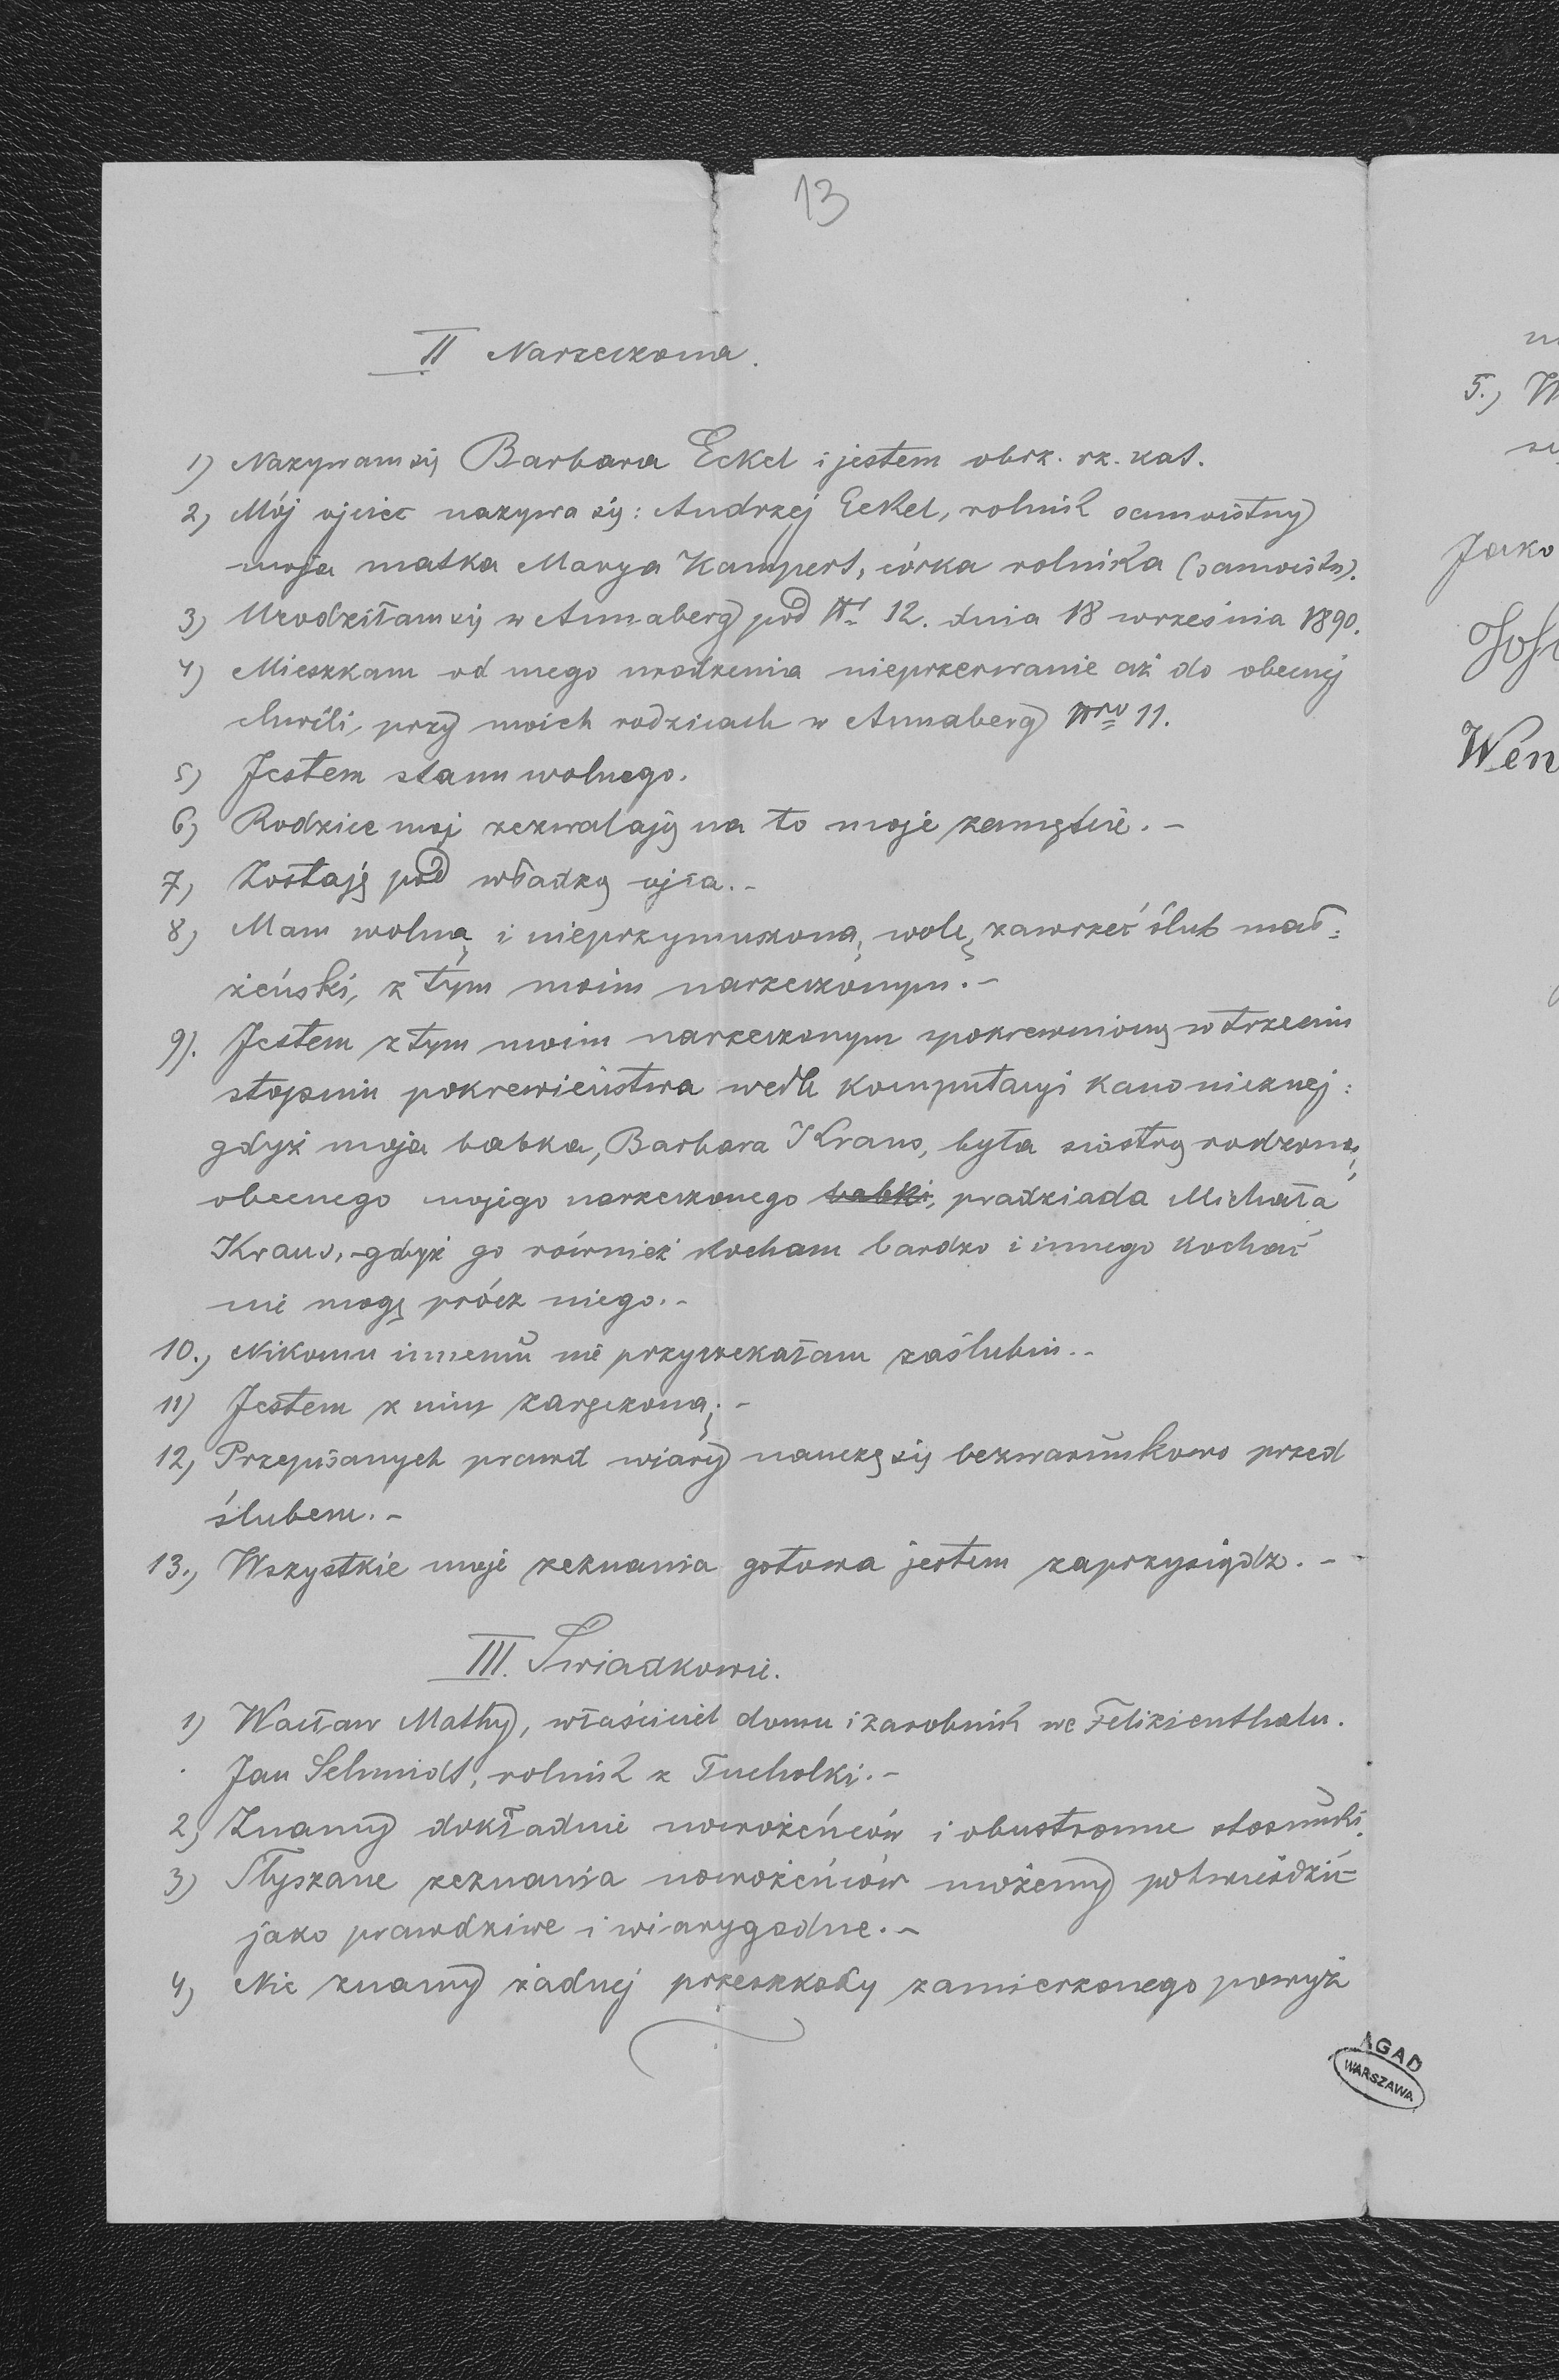 13
II Narzeczona.
1) Nazywam się Barbara Eckel i jestem obrz. rz. kat.
2) Mój ojciec nazywa się: Andrzej Eckel, rolnik samoistny
moja matka Marya Kampert, córka rolnika (samoistn).
3) Urodziłam się w Annaberg pod Nr 12. dnia 18 września 1890.
4) Mieszkam od mego urodzenia nieprzerwanie aż do obecnej
chwili, przy moich rodzicach w Annaberg Nro 11.
5) Jestem stanu wolnego.
6) Rodzice moi zezwalają na to moje zamęście. –
7) Zostaję pod władzą ojca. –
8) Mam wolną i nieprzymuszoną wolę zawrzeć ślub mał=
żeński, z tym moim narzeczonym. –
9). Jestem z tym moim narzeczonym spokrewnioną w trzecim
stopniu pokrewieństwa wedle komputacyi kanonicznej:
gdyż moja babka, Barbara Kraus, była siostrą rodzoną
obecnego mojego narzeczonego babki, pradziada Michała
Kraus, gdyż go również kocham bardzo i innego kochać
nie mogę prócz niego. –
10.) Nikomu innemu nie przyrzekałam zaślubin. –
11) Jestem z nim zaręczoną. –
12) Przepisanych prawd wiary nauczę się bezwarunkowo przed
ślubem. –
13.) Wszystkie moje zeznania gotowa jestem zaprzysiądz. –
III. Świadkowie.
1) Wacław Mathy, właściciel domu i zarobnik we Felizienthalu.
Jan Schmidt, rolnik z Tucholki. –
2) Znamy dokładnie nowożeńców i obustronne stosunki.
3) Słyszane zeznania nowożeńców możemy potwierdzić
jako prawdziwe i wiarygodne. –
4) Nie znamy żadnej przeszkody zamierzonego powyż
5.) W
Jako
Joh
Wen
AGAD
WARSZAWA